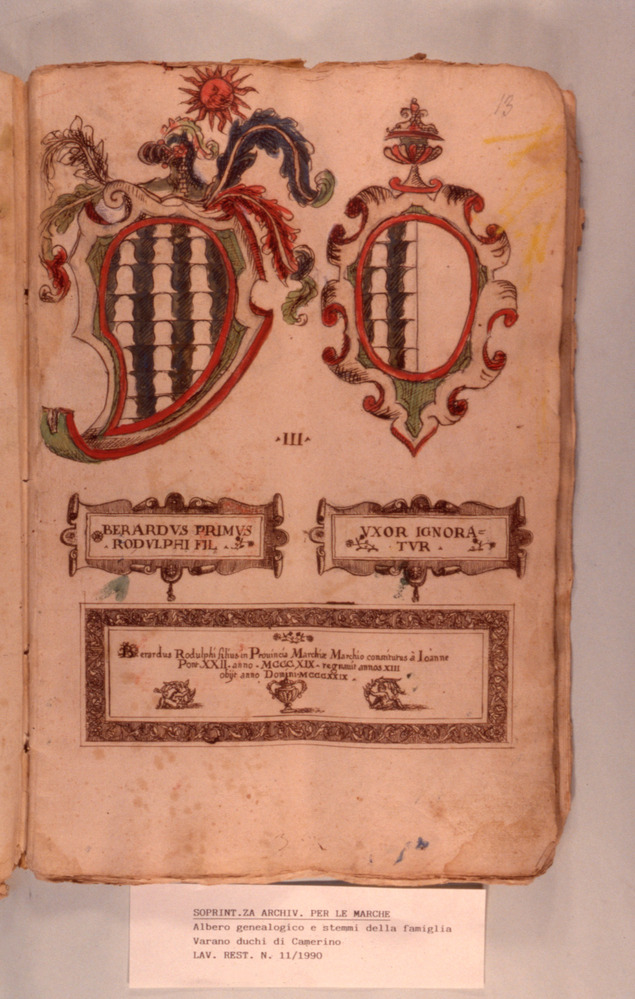 13
·III·
BERARDVS PRIMVS
RODVLPHI FIL
VXOR IGNORA=
TVR
Berardus Rodulphi filius in Provincia Marchiæ Marchio constitutus à Ioanne
Pont. XXII. anno - MCCCXIX - regnauit annos XIII
obijt anno Domini MCCCXXIX
SOPRINT.ZA ARCHIV. PER LE MARCHE
Albero genealogico e stemmi della famiglia
Varano duchi di Camerino
LAV. REST. N. 11/1990